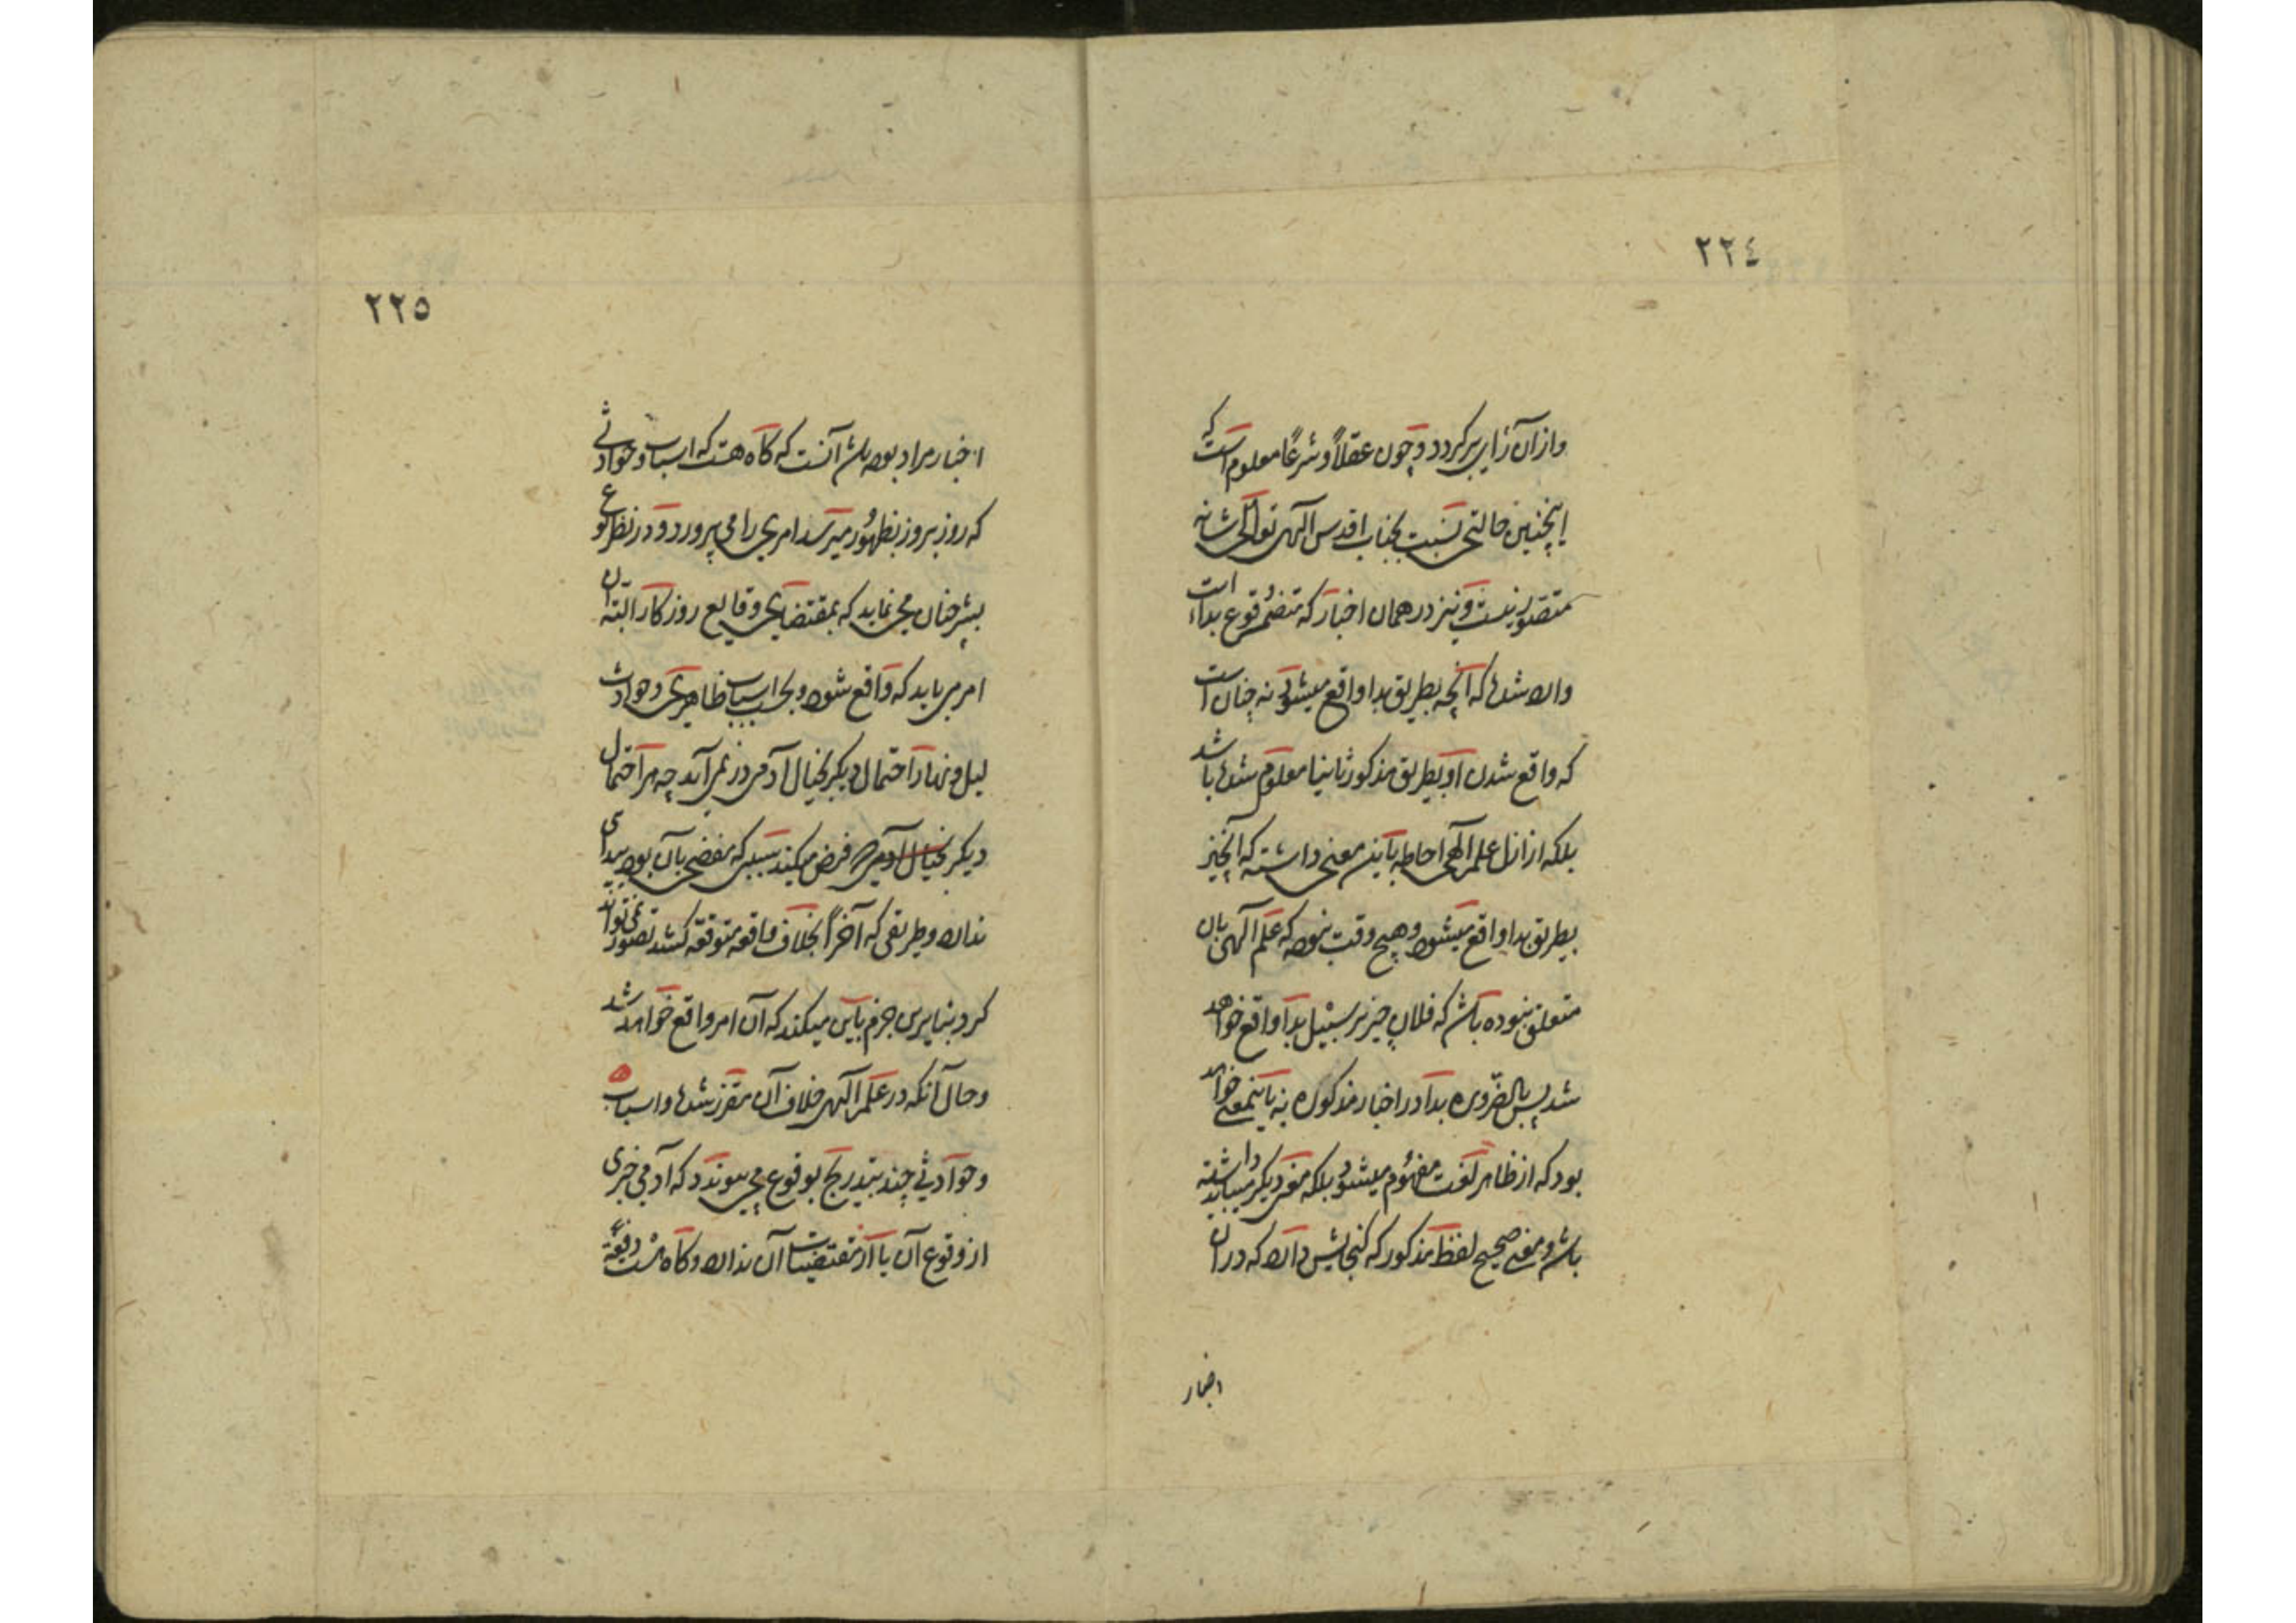 ٢٢٤
وازان رای برگردد و چون عقلاً و شرعاً معلوم است که
اینچنین حالتی نسبت بجناب اقدس الهی تعالی شانه
متصور نیست و نیز در همان اخبار که متضمن وقوع بداء است
وارد شده که آنچه بطریق بدا واقع میشود نه چنان است
که واقع شدن او بطریق مذکور ثانیا معلوم شده باشد
بلکه از ازل علم الهی احاطه باین معنی داشته که آن چیز
بطریق بدا واقع میشود و هیچ وقت نبوده که علم الهی بان
متعلق نبوده باشد که فلان چیز بر سبیل بدا واقع خواهد
شد پس بالضروره بدا در اخبار مذکوره نه باینمعنی خواهد
بود که از ظاهر لغت مفهوم میشود بلکه معنی دیگر میباید داشته
باشد و معنی صحیح لفظ مذکور که گنجایش دارد که در ان
اخبار
٢٢٥
اخبار مراد بوده باشد آنست که گاه هست که اسباب و حوادثی
که روز بروز بظهور میرسد امری را می پرورد و در نظر نوع
بشر چنان می نماید که بمقتضای وقایع روزگار البته آن
امر می باید که واقع شود و بحسب اسباب ظاهری و حوادث
لیل و نهار احتمال دیگر بخیال آدمی در نمی آید چه هر احتمال
دیگر بخیال آدمی فرض میکند سببی که مفضی بآن بوده پیدای
ندارد و طریقی که آخراً بخلاف واقعه متوقعه کشد تصور نمی تواند
کرد بنا برین جزم باین میکند که آن امر واقع خواهد شد
و حال آنکه در علم الهی خلاف آن مقرر شده و اسباب
و حوادثی چند بتدریج بوقوع می پیوندد که آدمی خبری
از وقوع آن یا از مقتضیات آن ندارد و گاه هست دفعة